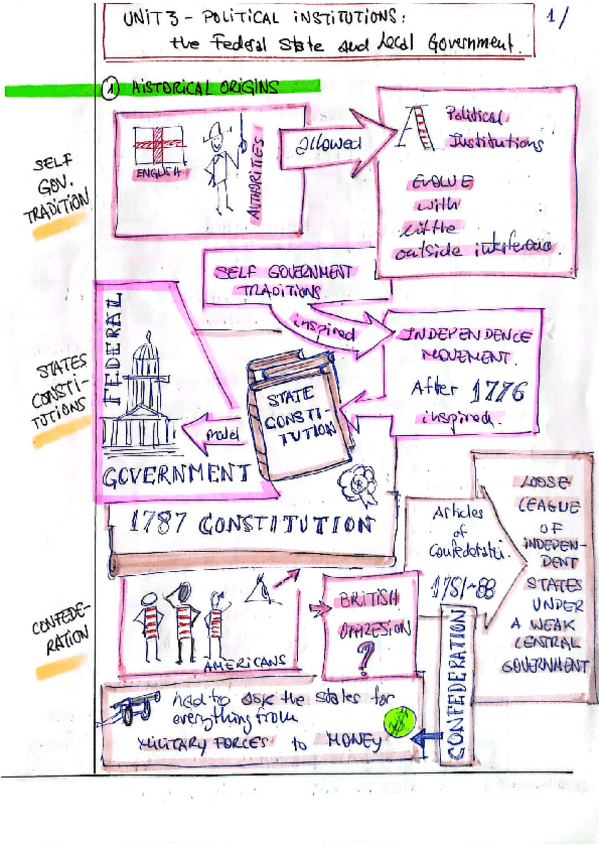 UNIT 3 - POLITICAL INSTITUTIONS:
the Federal State and Local Government.
1/
1 HISTORICAL ORIGINS
SELF
GOV.
TRADITION
ENGLISH
AUTHORITIES
allowed
Political
Institutions
EVOLVE
with
little
outside interference.
SELF GOVERNMENT
TRADITIONS
inspired
INDEPENDENCE
MOVEMENT.
After 1776
inspired.
STATES
CONSTI-
TUTIONS
FEDERAL
GOVERNMENT
model
STATE
CONSTI-
TUTION
1787 CONSTITUTION
Articles
of
1781-88
LOOSE
LEAGUE
OF
INDEPEN-
DENT
STATES
UNDER
A WEAK
CENTRAL
GOVERNMENT
CONFEDE-
RATION
AMERICANS
BRITISH
OPPRESION
?
CONFEDERATION
had to ask the states for
everything from
MILITARY FORCES to MONEY
$